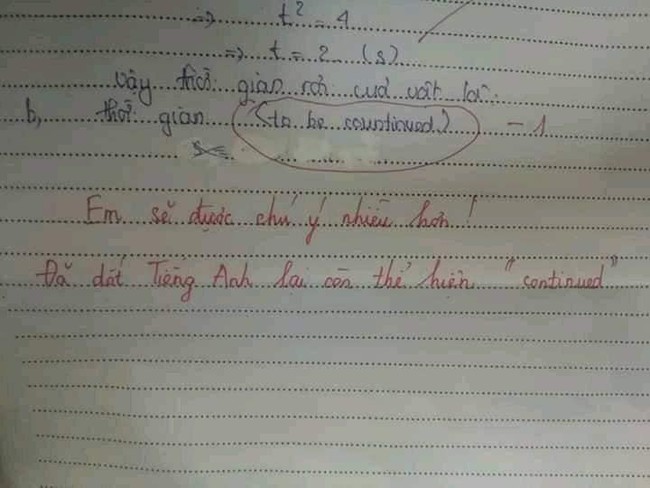 => t² = 4
=> t = 2 (s)
Vậy thời gian rơi của vật là:
b, thời gian (to be countinued) - 1
Em sẽ được chú ý nhiều hơn!
Đã dốt Tiếng Anh lại còn thể hiện "continued"